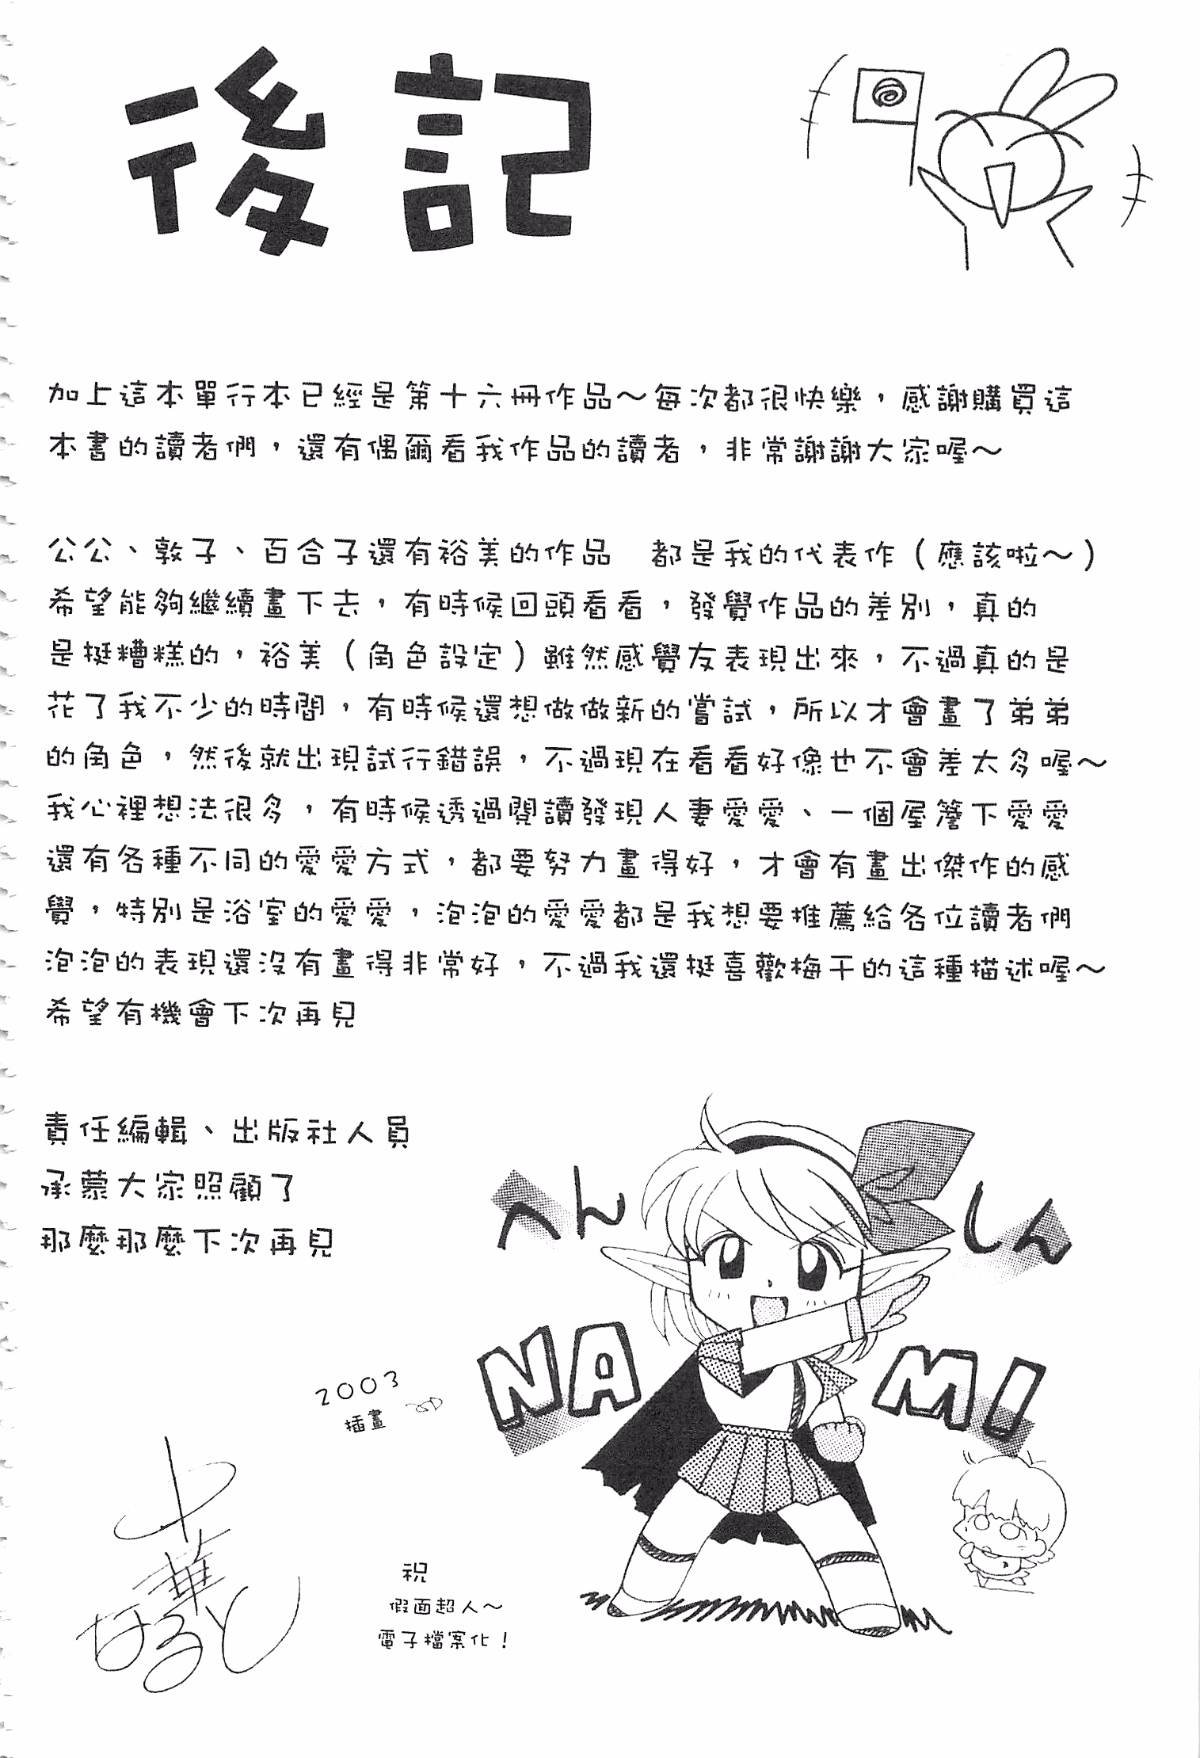 後記
加上這本單行本已經是第十六冊作品～每次都很快樂，感謝購買這
本書的讀者們，還有偶爾看我作品的讀者，非常謝謝大家喔～
公公、敦子、百合子還有裕美的作品　都是我的代表作（應該啦～）
希望能夠繼續畫下去，有時候回頭看看，發覺作品的差別，真的
是挺糟糕的，裕美（角色設定）雖然感覺友表現出來，不過真的是
花了我不少的時間，有時候還想做做新的嘗試，所以才會畫了弟弟
的角色，然後就出現試行錯誤，不過現在看看好像也不會差太多喔～
我心裡想法很多，有時候透過閱讀發現人妻愛愛、一個屋簷下愛愛
還有各種不同的愛愛方式，都要努力畫得好，才會有畫出傑作的感
覺，特別是浴室的愛愛，泡泡的愛愛都是我想要推薦給各位讀者們
泡泡的表現還沒有畫得非常好，不過我還挺喜歡梅干的這種描述喔～
希望有機會下次再見
責任編輯、出版社人員
承蒙大家照顧了
那麼那麼下次再見
へん
しん
NA
MI
2003
插畫
祝
假面超人～
電子檔案化！